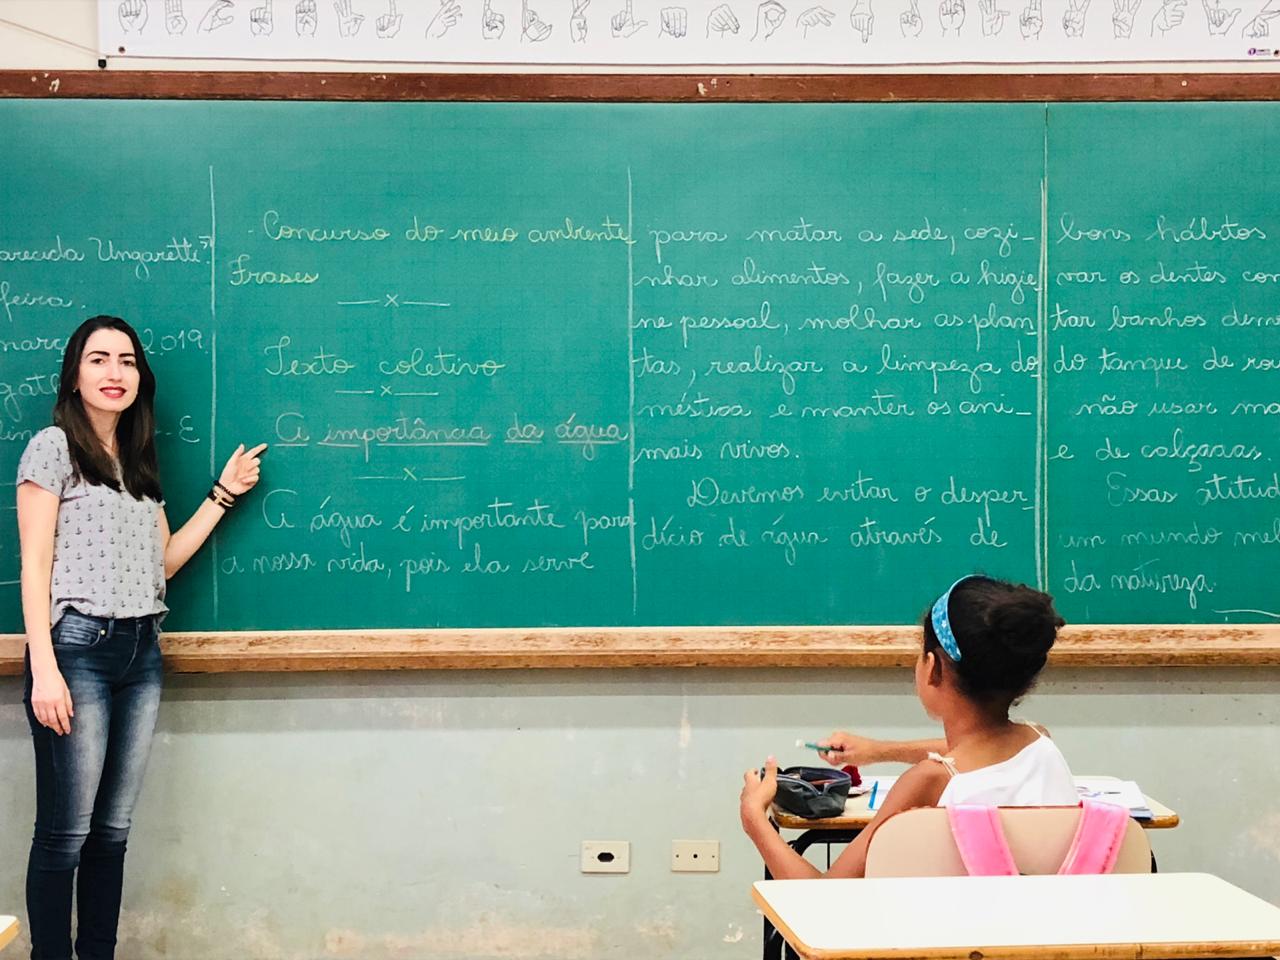 arecida Ungaretti"
feira.
2019.
E
- Concurso do meio ambiente
Frases
—x—
Texto coletivo
—x—
A importância da água
—x—
A água é importante para
a nossa vida, pois ela serve
para matar a sede, cozi-
nhar alimentos, fazer a higie
ne pessoal, molhar as plan-
tas, realizar a limpeza do-
méstica e manter os ani-
mais vivos.
Devemos evitar o desper-
dício de água através de
bons hábitos
var os dentes con
tar banhos demo
do tanque de rou
não usar ma
e de calçaaas.
Essas atitud
um mundo mel
da natureza.